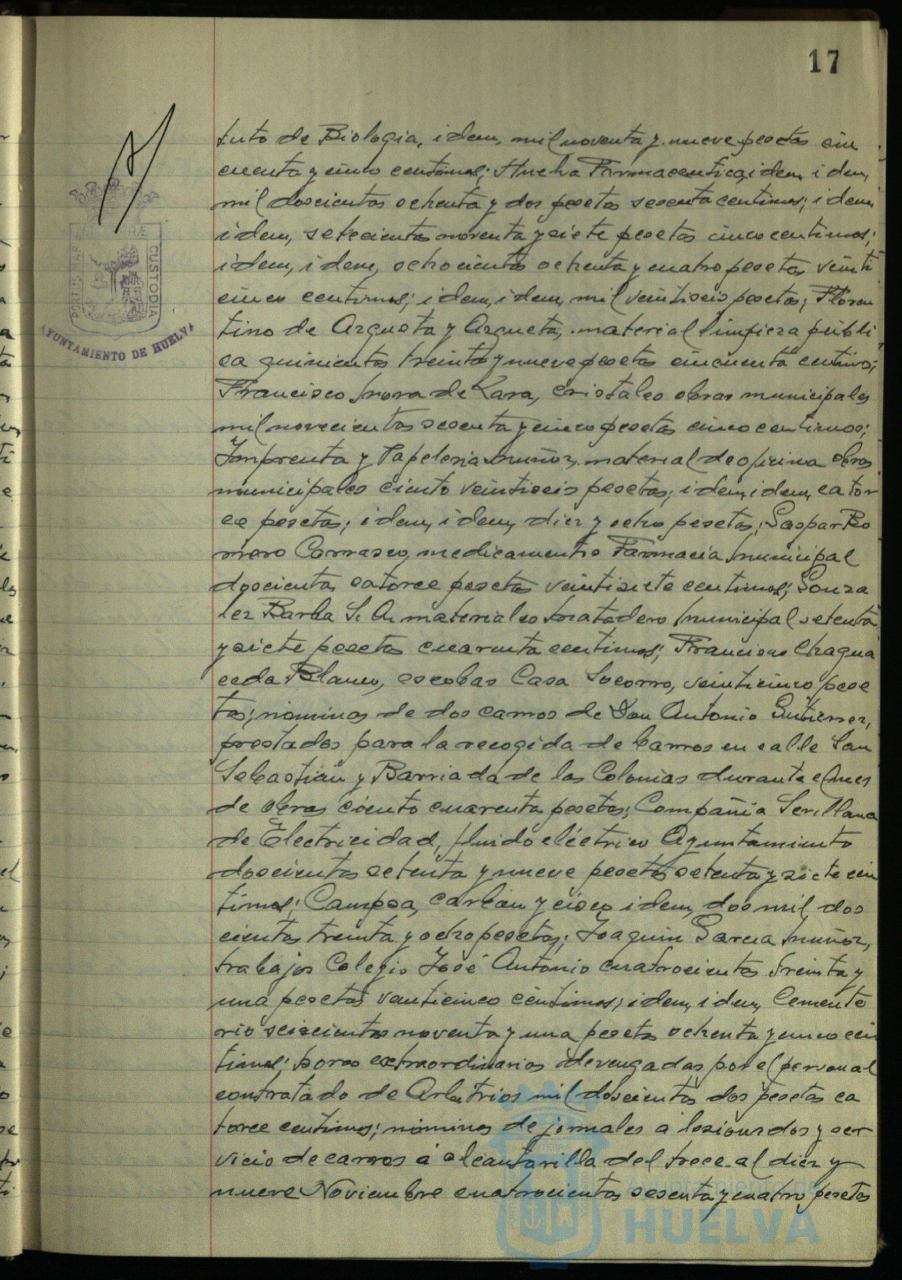 17
tuto de Biologia, idem, mil noventa y nueve pesetas cin
cuenta y cinco centimos; Huelva Farmaceutica, idem, idem,
mil doscientas ochenta y dos pesetas sesenta centimos; idem,
idem, setecientas noventa y siete pesetas cinco centimos;
idem, idem, ochocientas ochenta y cuatro pesetas veinti
cinco centimos; idem, idem, mil veintiseis pesetas; Floren
tino de Azqueta y Azqueta, material limpieza públi
ca quinientas treinta y nueve pesetas cincuenta centimos;
Francisco Mora de Lara, cristales obras municipales
mil novecientas sesenta y cinco pesetas cinco centimos;
Imprenta y Papeleria Muñoz, material de oficina obras
municipales ciento veintiseis pesetas; idem, idem, cator
ce pesetas; idem, idem, diez y ocho pesetas; Gaspar Ro
mero Carrasco, medicamentos Farmacia Municipal
doscientas catorce pesetas veintisiete centimos; Gonza
lez Barba S. A. materiales Matadero Municipal setenta
y siete pesetas cuarenta centimos; Francisco Chagua
ceda Blanco, escobas Casa Socorro, veinticinco pese
tas; nominas de dos carros de Don Antonio Gutierrez,
prestados para la recogida de barros en calle San
Sebastián y Barriada de las Colonias durante el mes
de obras ciento cuarenta pesetas; Compañia Sevillana
de Electricidad, fluido eléctrico Ayuntamiento
doscientas setenta y nueve pesetas setenta y siete cen
timos; Campsa, carbón y cisco, idem, dos mil dos
cientas treinta y ocho pesetas; Joaquin Garcia Muñoz,
trabajos Colegio José Antonio cuatrocientas treinta y
una pesetas veinticinco céntimos; idem, idem, Cemente
rio seiscientas noventa y una pesetas ochenta y cinco cen
timos; horas extraordinarias devengadas por el personal
contratado de Arbitrios mil doscientas dos pesetas ca
torce centimos; nóminas de jornales a lesionados y ser
vicio de carros á alcantarilla del trece al diez y
nueve Noviembre cuatrocientas sesenta y cuatro pesetas
PORTUS MARIS ET TERRÆ CUSTODIA
AYUNTAMIENTO DE HUELVA
Ayuntamiento de
HUELVA